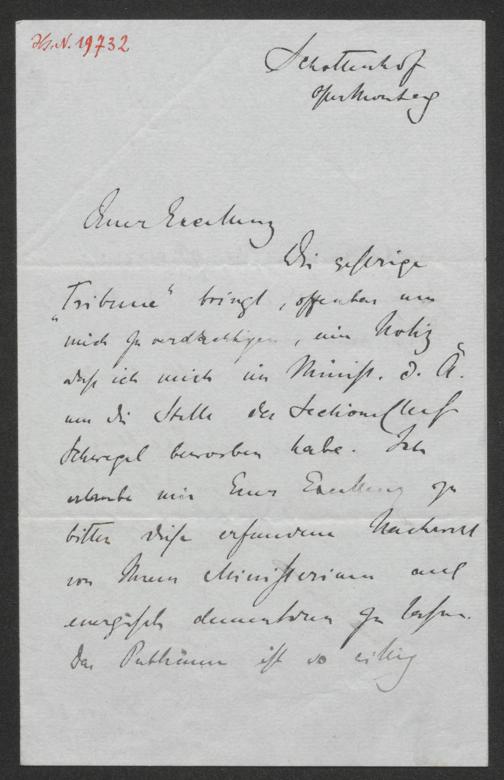 Hs.N. 19732
Schottenhof
Ostermontag
Euer Excellenz
Die gestrige
"Tribune" bringt, offenbar um
mich zu verdächtigen, eine Notiz
daß ich mich im Minist. d. Ä.
um die Stelle des Sectionschef
Schwegel beworben habe. Ich
erlaube mir Euer Excellenz zu
bitten diese erfundene Nachricht
von Ihrem Ministerium aus
energisch dementiren zu lassen.
Das Publikum ist so